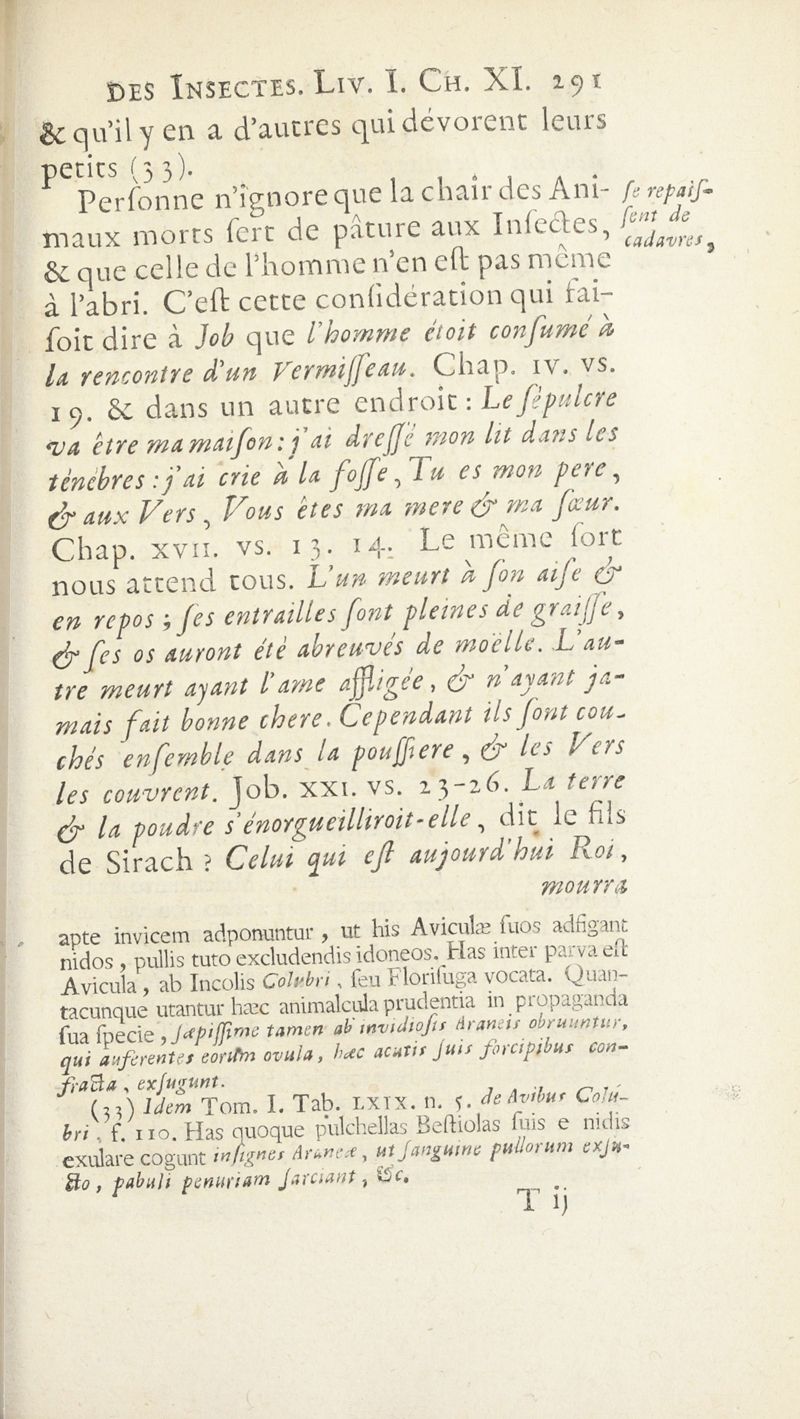 DES INSECTES. LIV. I. CH. XI. 291
& qu'il y en a d'autres qui dévorent leurs
petits (33).
Perſonne n'ignore que la chair des Ani-
maux morts ſert de pâture aux Inſectes,
& que celle de l'homme n'en eſt pas même
à l'abri. C'eſt cette conſidération qui fai-
ſoit dire à Job que l'homme étoit conſumé à
la rencontre d'un Vermiſſeau. Chap. IV. vs.
19. & dans un autre endroit : Le ſépulcre
va être ma maiſon : j'ai dreſſé mon lit dans les
ténébres : j'ai crié à la foſſe, Tu es mon pere,
& aux Vers, Vous êtes ma mere & ma ſœur.
Chap. XVII. vs. 13. 14. Le même ſort
nous attend tous. L'un meurt à ſon aiſe &
en repos ; ſes entrailles ſont pleines de graiſſe,
& ſes os auront été abreuvés de moëlle. L'au-
tre meurt ayant l'ame affligée, & n'ayant ja-
mais fait bonne chere. Cependant ils ſont cou-
chés enſemble dans la pouſſiere, & les Vers
les couvrent. Job. XXI. vs. 23-26. La terre
& la poudre s'énorgueilliroit-elle, dit le fils
de Sirach ? Celui qui eſt aujourd'hui Roi,
mourra
ſe repaiſ-
ſent de
cadavres,
apte invicem adponuntur, ut his Aviculæ ſuos adfigant
nidos, pullis tuto excludendis idoneos. Has inter parva eſt
Avicula, ab Incolis Colubri, ſeu Floriſuga vocata. Quan-
tacunque utantur hæc animalcula prudentia in propaganda
ſua ſpecie, ſæpiſſime tamen ab invidioſis Araneis obruuntur,
qui auferentes eorum ovula, hæc acutis ſuis forcipibus con-
fracta, exſugunt.
(33) Idem Tom. I. Tab. LXIX. n. 5. de Avibus Colu-
bri, f. 110. Has quoque pulchellas Beſtiolas ſuis e nidis
exulare cogunt inſignes Araneæ, ut ſanguine pullorum exſu-
cto, pabuli penuriam ſarciant, &c.
T ij